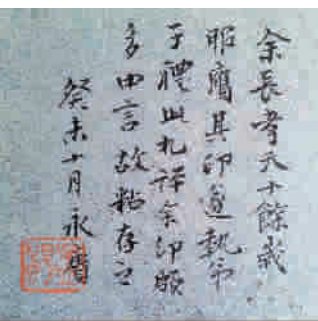 余長孝天十餘歲
服膺其印遂執弟
子禮此札評余印願
多中言故粘存之
癸未十月永膺